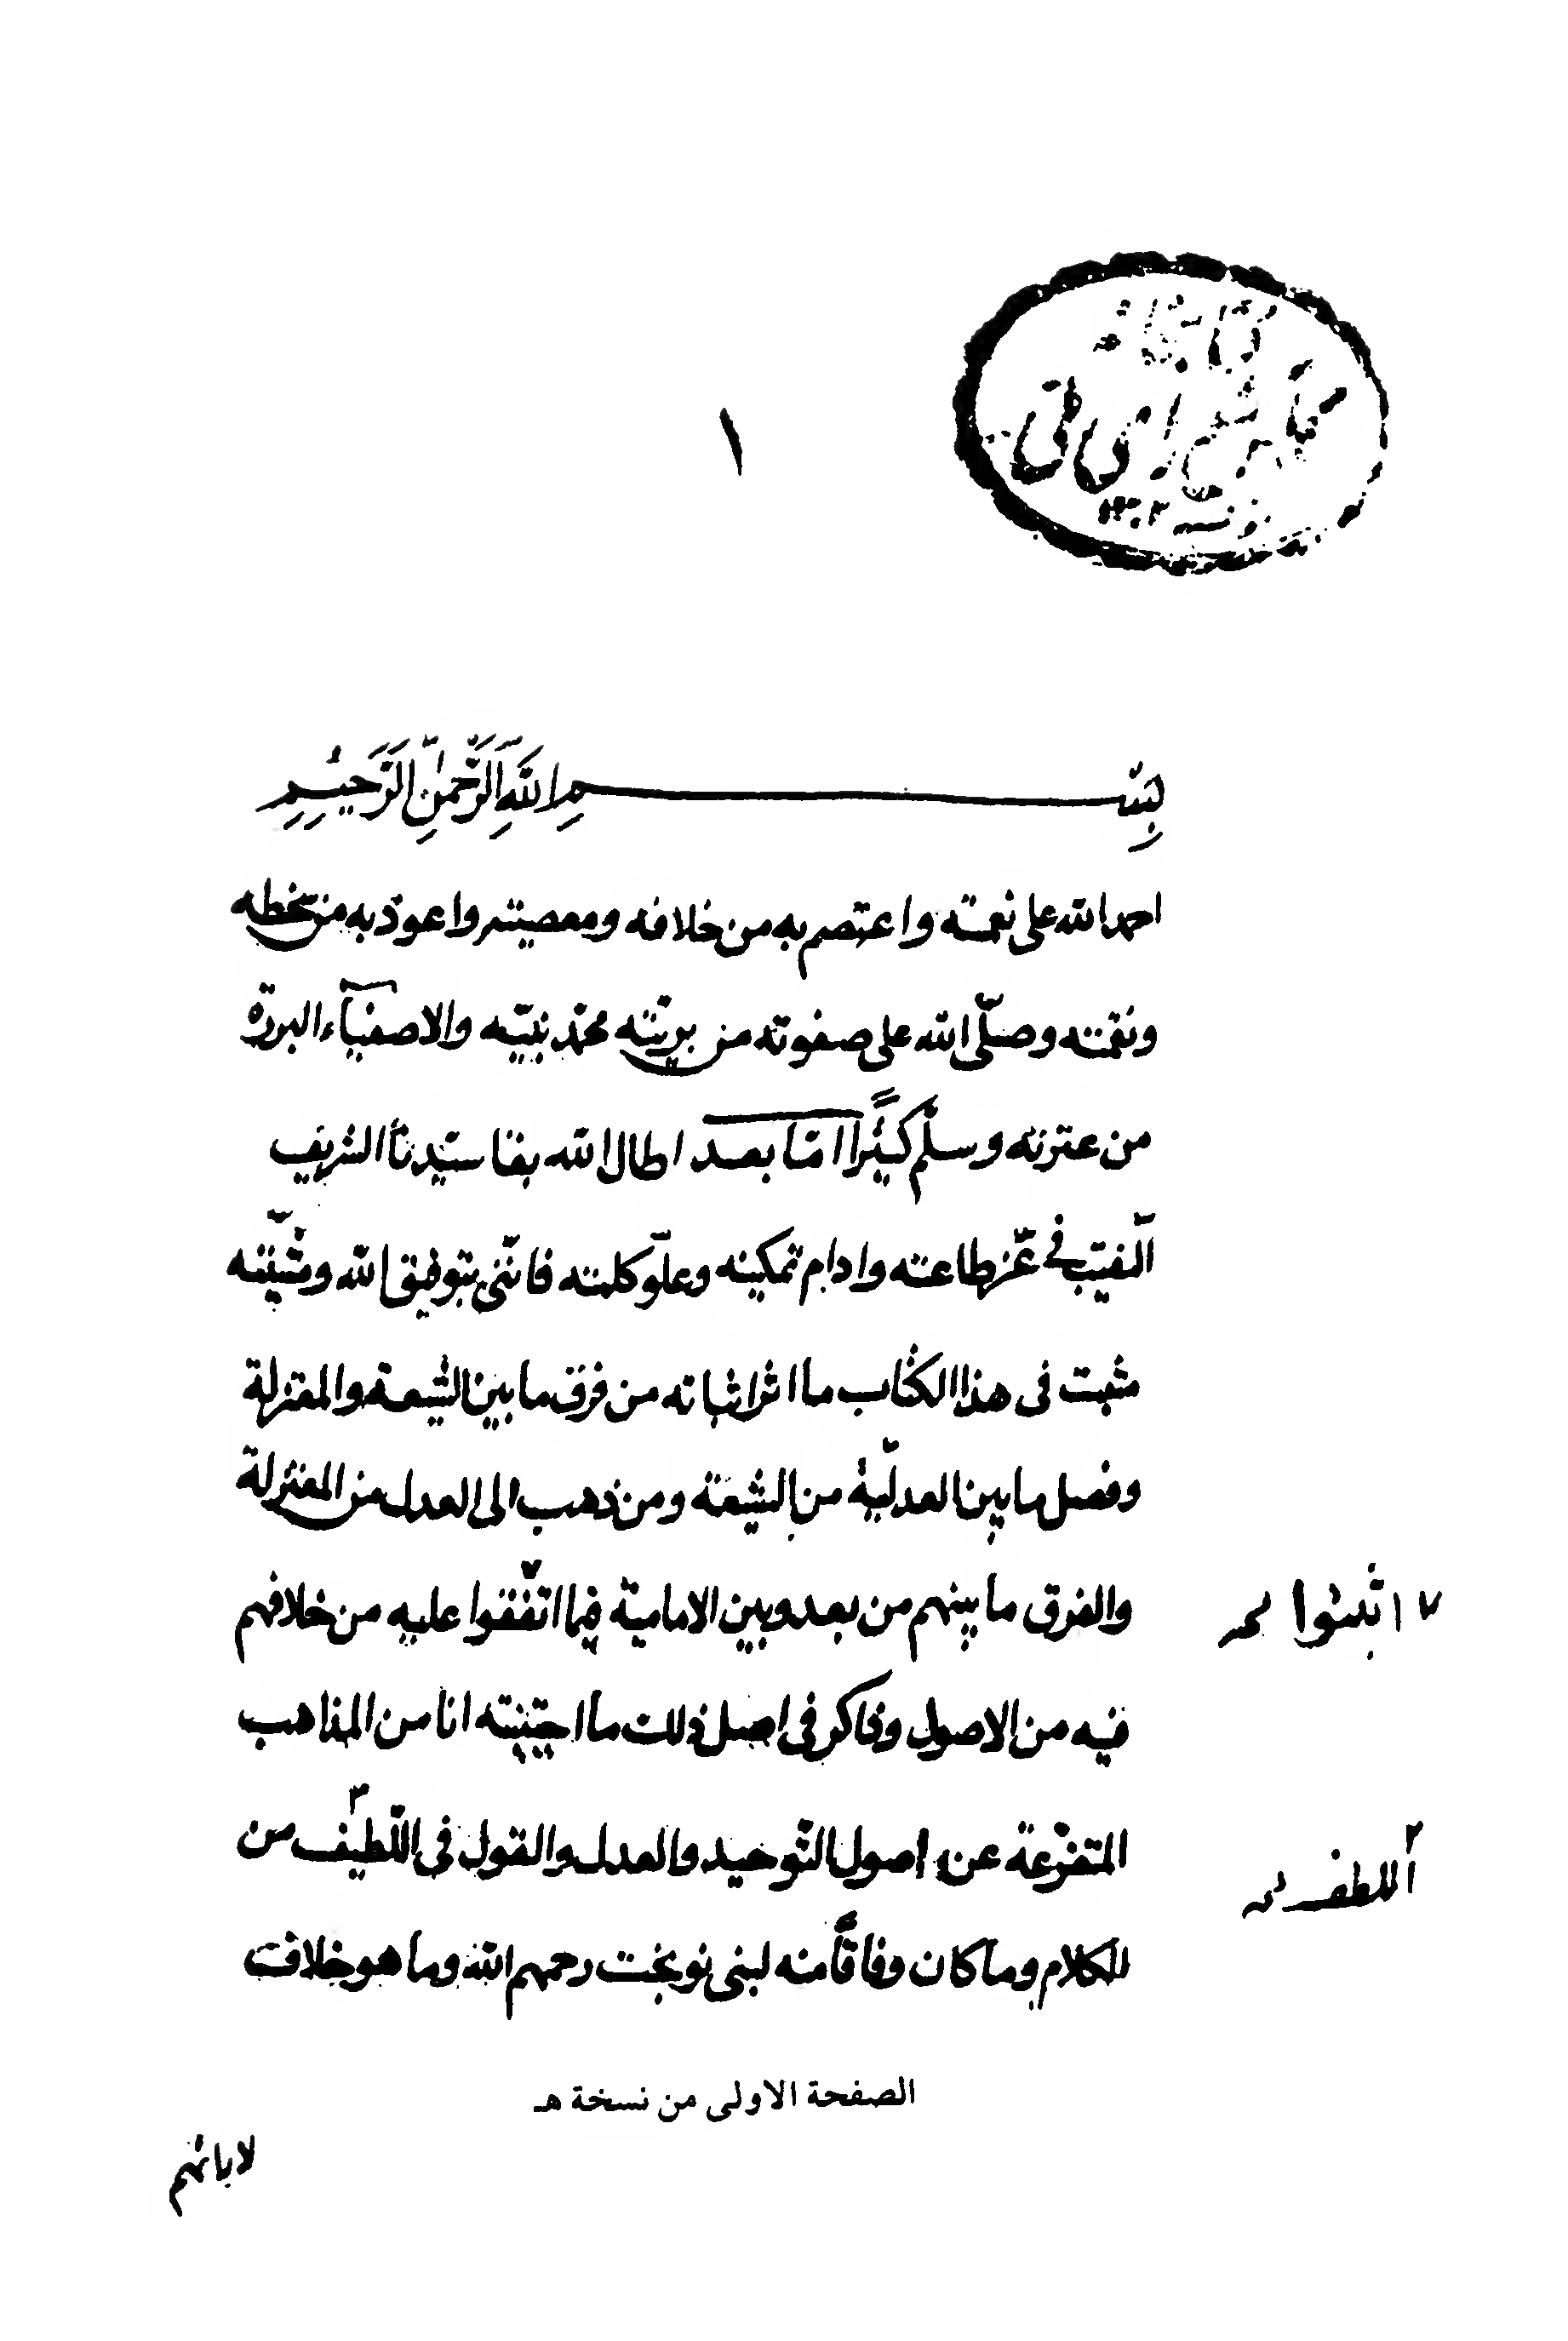 ١
بسم الله الرحمن الرحيم
احمد الله على نعمته واعتصم به من خلافه ومعصيته واعوذ به من سخطه
ونقمته وصلّى الله على صفوته من بريّته محمّد نبيّه والاصفيآء البررة
من عترته وسلّم كثيرًا امّا بعد اطال الله بقا سيّدنا الشريف
النقيب فى عزّ طاعته وادام تمكينه وعلوّ كلمته فانّنى بتوفيق الله ومشيّته
مثبت فى هذا الكتاب ما اثر اثباته من فرق ما بين الشيعة والمعتزلة
وفصل ما بين العدليّة من الشيعة ومن ذهب الى العدل من المعتزلة
والفرق ما بينهم من بعد وبين الامامية فيما اتّفقوا عليه من خلافهم
فيه من الاصول وذاكر فى اصل ذلك ما اجتبيته انا من المذاهب
المتفرّعة عن اصول التّوحيد والعدل والقول فى اللّطيف من
الكلام وما كان وفاقًا منه لبنى نوبخت رحمهم الله وما هو خلاف
اللطف
الصفحة الاولى من نسخة هـ
لابائهم